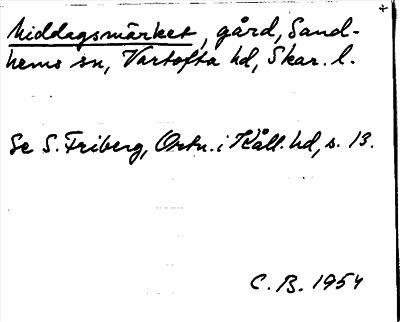 +
Middagsmärket, gård, Sand-
hems sn, Vartofta hd, Skar. l.
Se S. Friberg, Ortn. i Kåll. hd, s. 13.
C. B. 1954